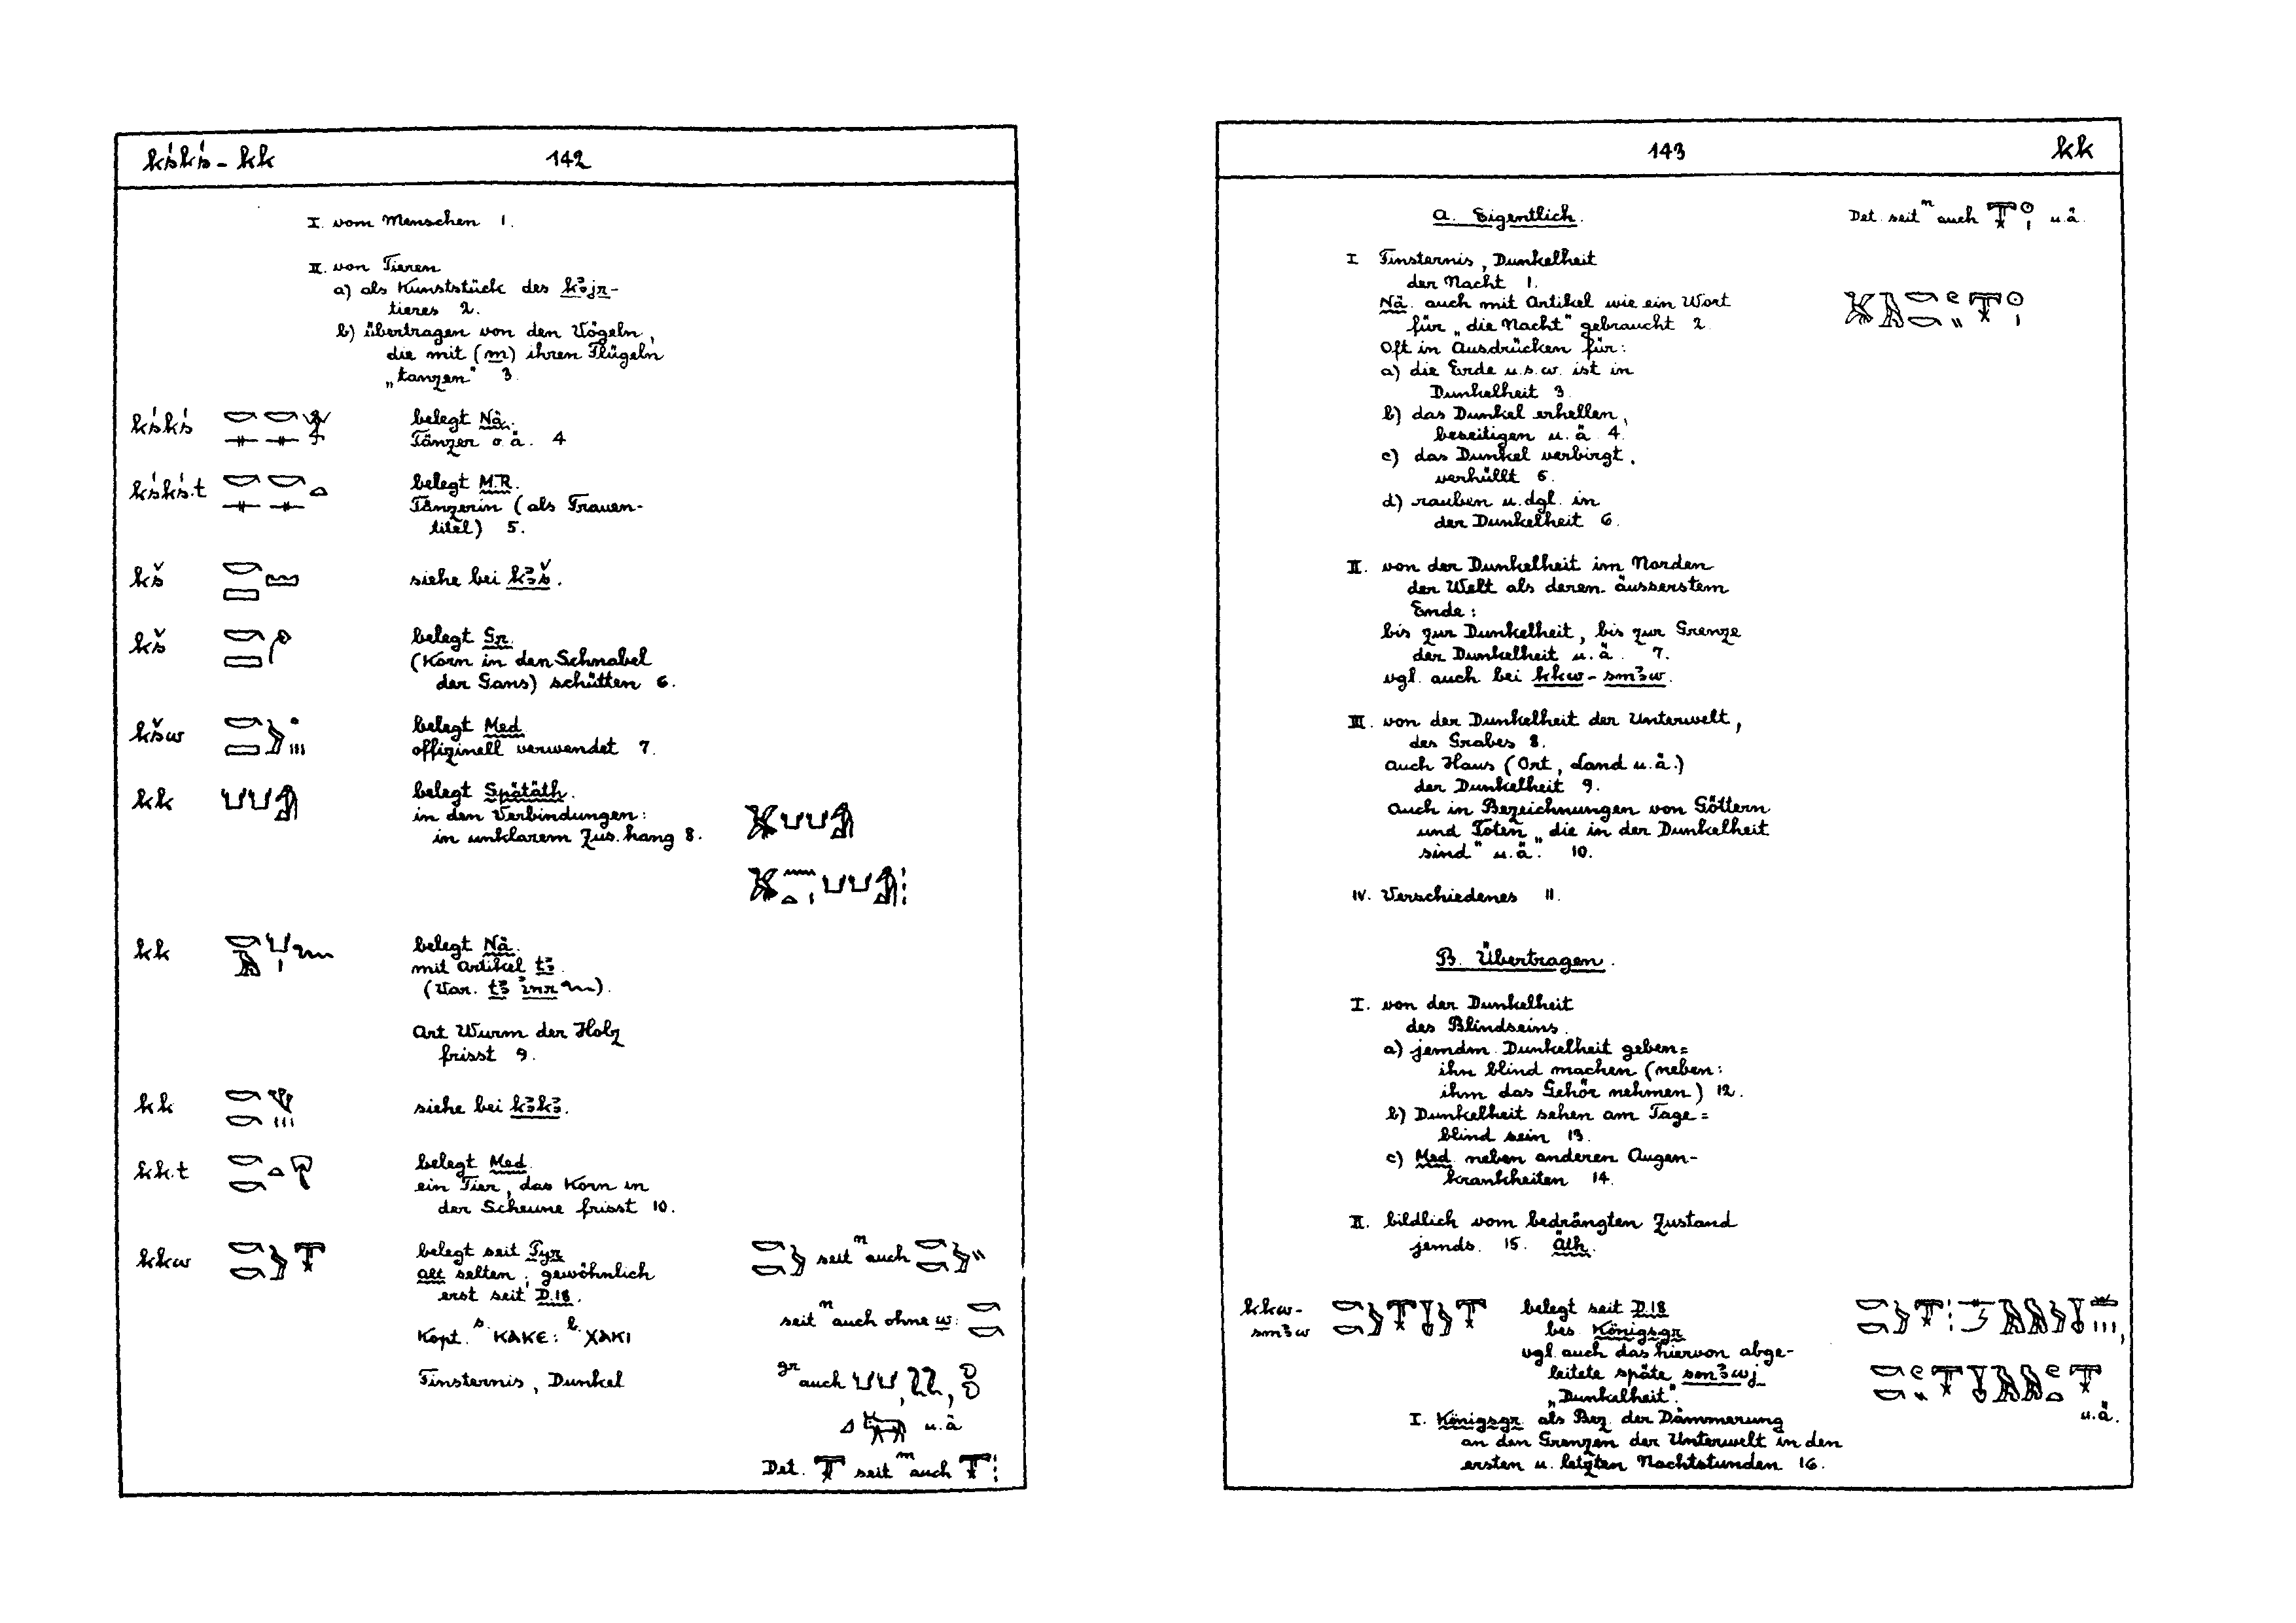 kśkś - kk 142
I. vom Menschen 1.
II. von Tieren
a) als Kunststück des kꜣjr-
tieres 2.
b) übertragen von den Vögeln,
die mit (m) ihren Flügeln
„tanzen" 3.
kśkś belegt Nä.
Tänzer o. ä. 4
kśkś.t belegt M.R.
Tänzerin (als Frauen-
titel) 5.
kš siehe bei kꜣš.
kš belegt Gr.
(Korn in den Schnabel
der Gans) schütten 6.
kšw belegt Med.
offizinell verwendet 7.
kk belegt Spätäth.
in den Verbindungen:
in unklarem Zus.hang 8.
kk belegt Nä.
mit Artikel tꜣ.
(Var. tꜣ inr).
Art Wurm der Holz
frisst 9.
kk siehe bei kꜣkꜣ.
kk.t belegt Med.
ein Tier, das Korn in
der Scheune frisst 10.
kkw belegt seit Pyr.
alt selten; gewöhnlich
erst seit D.18.
seit n auch
seit n auch ohne w:
Kopt. s. ⲕⲁⲕⲉ: b. ⲭⲁⲕⲓ
Finsternis, Dunkel
gr auch
u. ä
Det. seit m auch
143 kk
A. Eigentlich.
Det. seit n auch u. ä.
I Finsternis, Dunkelheit
der Nacht 1.
Nä. auch mit Artikel wie ein Wort
für „die Nacht" gebraucht 2.
Oft in Ausdrücken für:
a) die Erde u.s.w. ist in
Dunkelheit 3.
b) das Dunkel erhellen,
beseitigen u. ä. 4.
c) das Dunkel verbirgt,
verhüllt 5.
d) rauben u. dgl. in
der Dunkelheit 6.
II. von der Dunkelheit im Norden
der Welt als deren äusserstem
Ende:
bis zur Dunkelheit, bis zur Grenze
der Dunkelheit u. ä. 7.
vgl. auch bei kkw-smꜣw.
III. von der Dunkelheit der Unterwelt,
des Grabes 8.
auch Haus (Ort, Land u. ä.)
der Dunkelheit 9.
auch in Bezeichnungen von Göttern
und Toten „die in der Dunkelheit
sind" u. ä. 10.
IV. Verschiedenes 11.
B. Übertragen.
I. von der Dunkelheit
des Blindseins.
a) jemdm. Dunkelheit geben =
ihn blind machen (neben:
ihm das Gehör nehmen) 12.
b) Dunkelheit sehen am Tage =
blind sein 13.
c) Med. neben anderen Augen-
krankheiten 14.
II. bildlich vom bedrängten Zustand
jemds. 15. Äth.
kkw-
smꜣw
belegt seit D.18
bes. Königsgr.
vgl. auch das hiervon abge-
leitete späte smꜣwj
„Dunkelheit".
u. ä.
I. Königsgr. als Bez. der Dämmerung
an den Grenzen der Unterwelt in den
ersten u. letzten Nachtstunden 16.